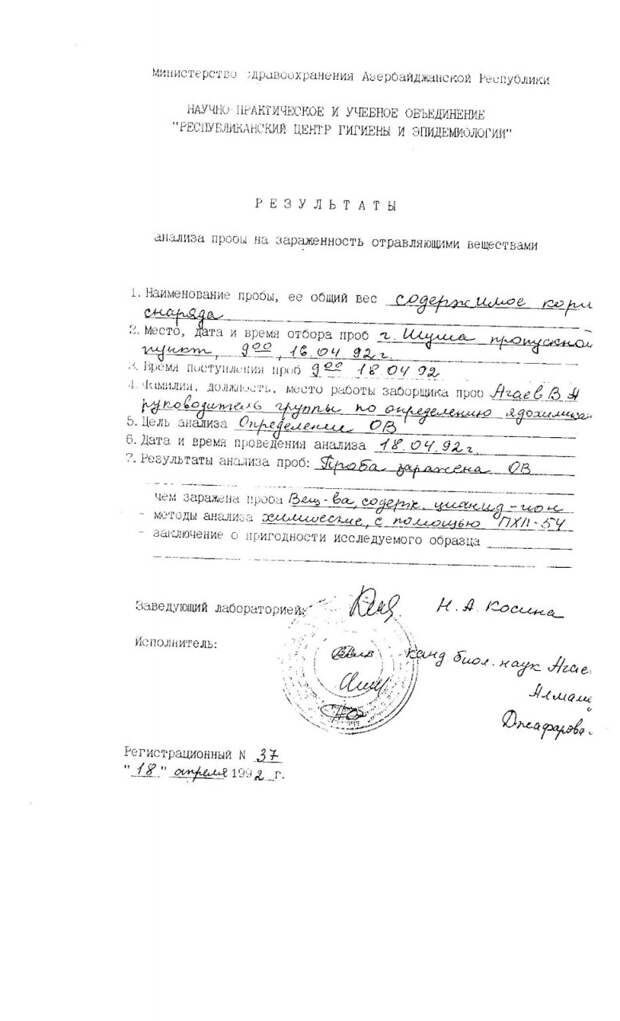 Министерство здравоохранения Азербайджанской Республики
НАУЧНО-ПРАКТИЧЕСКОЕ И УЧЕБНОЕ ОБЪЕДИНЕНИЕ
"РЕСПУБЛИКАНСКИЙ ЦЕНТР ГИГИЕНЫ И ЭПИДЕМИОЛОГИИ"
Р Е З У Л Ь Т А Т Ы
анализа пробы на зараженность отравляющими веществами
1. Наименование пробы, ее общий вес содержимое корп
снаряда
2. Место, дата и время отбора проб г. Шуша пропускной
пункт, 9⁰⁰, 16.04 92 г.
3. Время поступления проб 9⁰⁰ 18 04 92
4. Фамилия, должность, место работы заборщика проб Агаев В. А
руководитель группы по определению ядохимика
5. Цель анализа Определение ОВ
6. Дата и время проведения анализа 18.04.92 г.
7. Результаты анализа проб: Проба заражена ОВ
чем заражена проба Вещ-ва, содерж. цианид-ион
- методы анализа химические, с помощью ПХП-54
- заключение о пригодности исследуемого образца
Заведующий лабораторией: Н. А. Косина
Исполнитель: канд биол. наук Агае
Алмам
Джафарова
Регистрационный N 37
"18" апреля 1992 г.